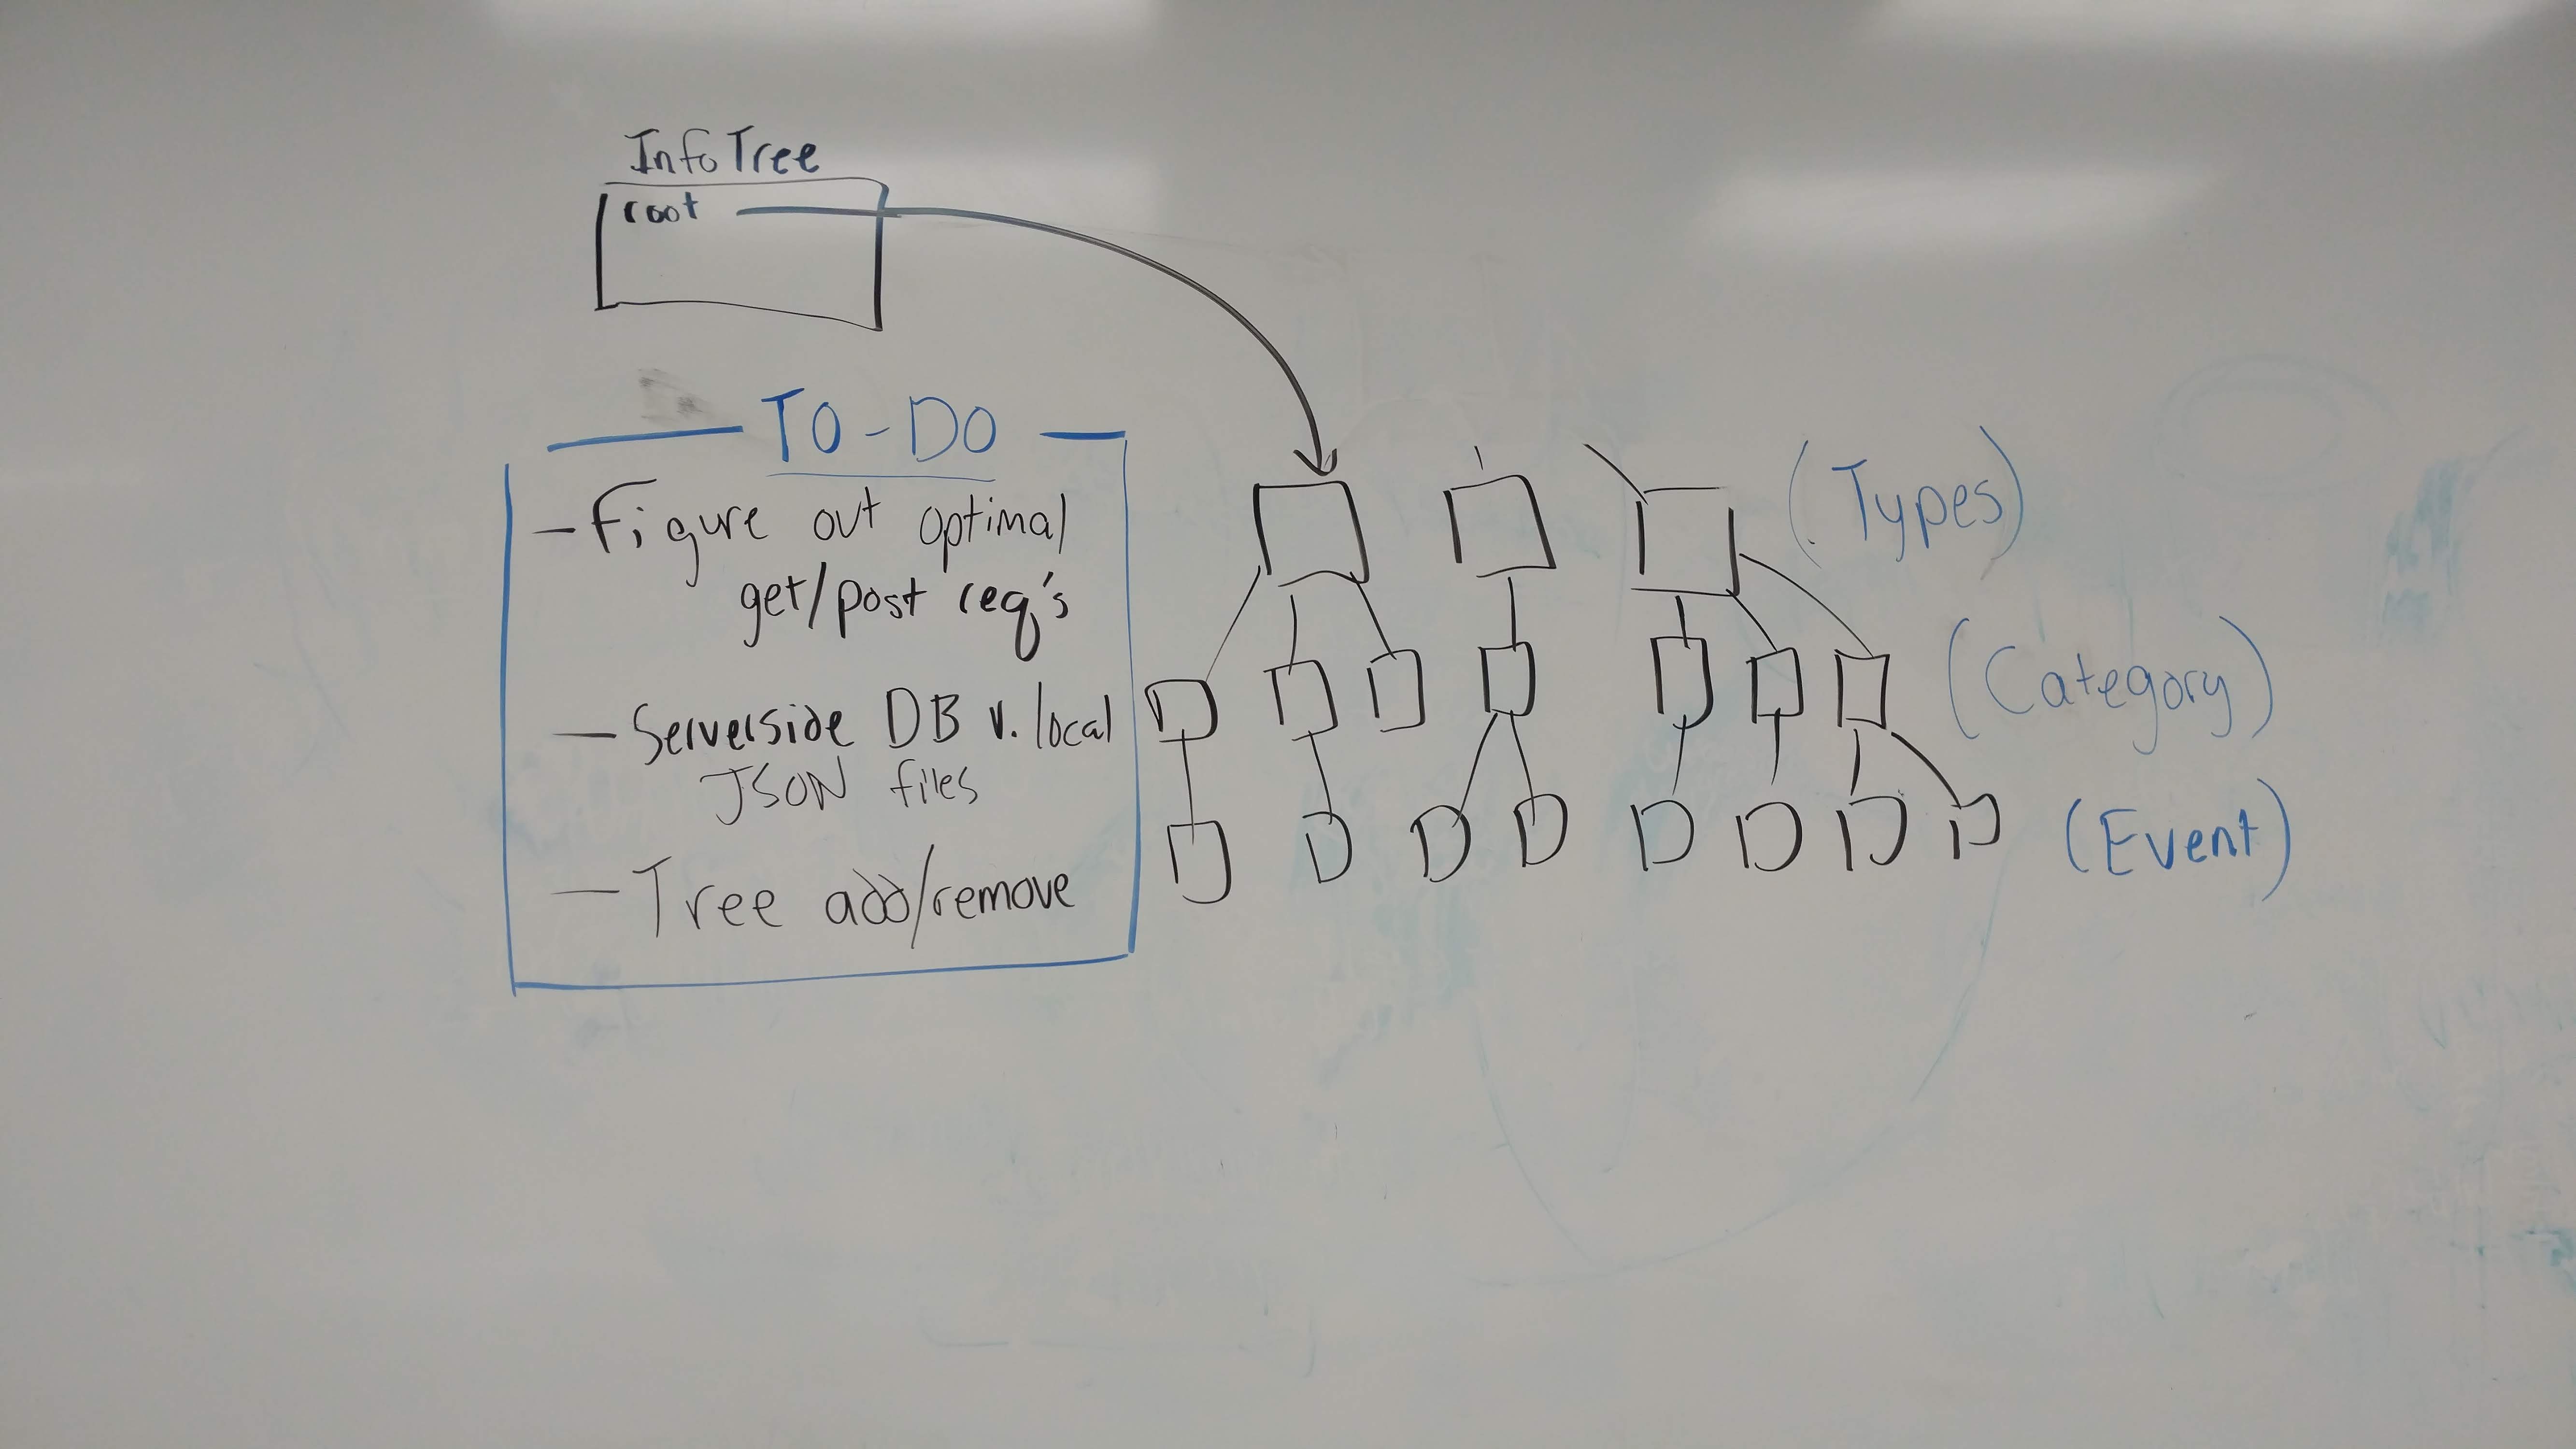 InfoTree
root
TO-DO
- Figure out optimal
get/post req's
- Serverside DB v. local
JSON files
- Tree add/remove
(Types)
(Category)
(Event)